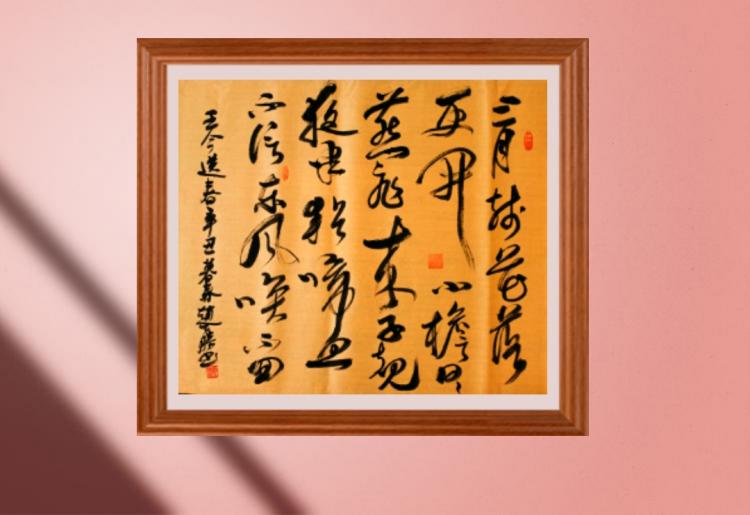 三月残花落
更开小檐日日
燕飞来子规
夜半犹啼血
不信东风唤不回
王令送春辛丑暮春赵书